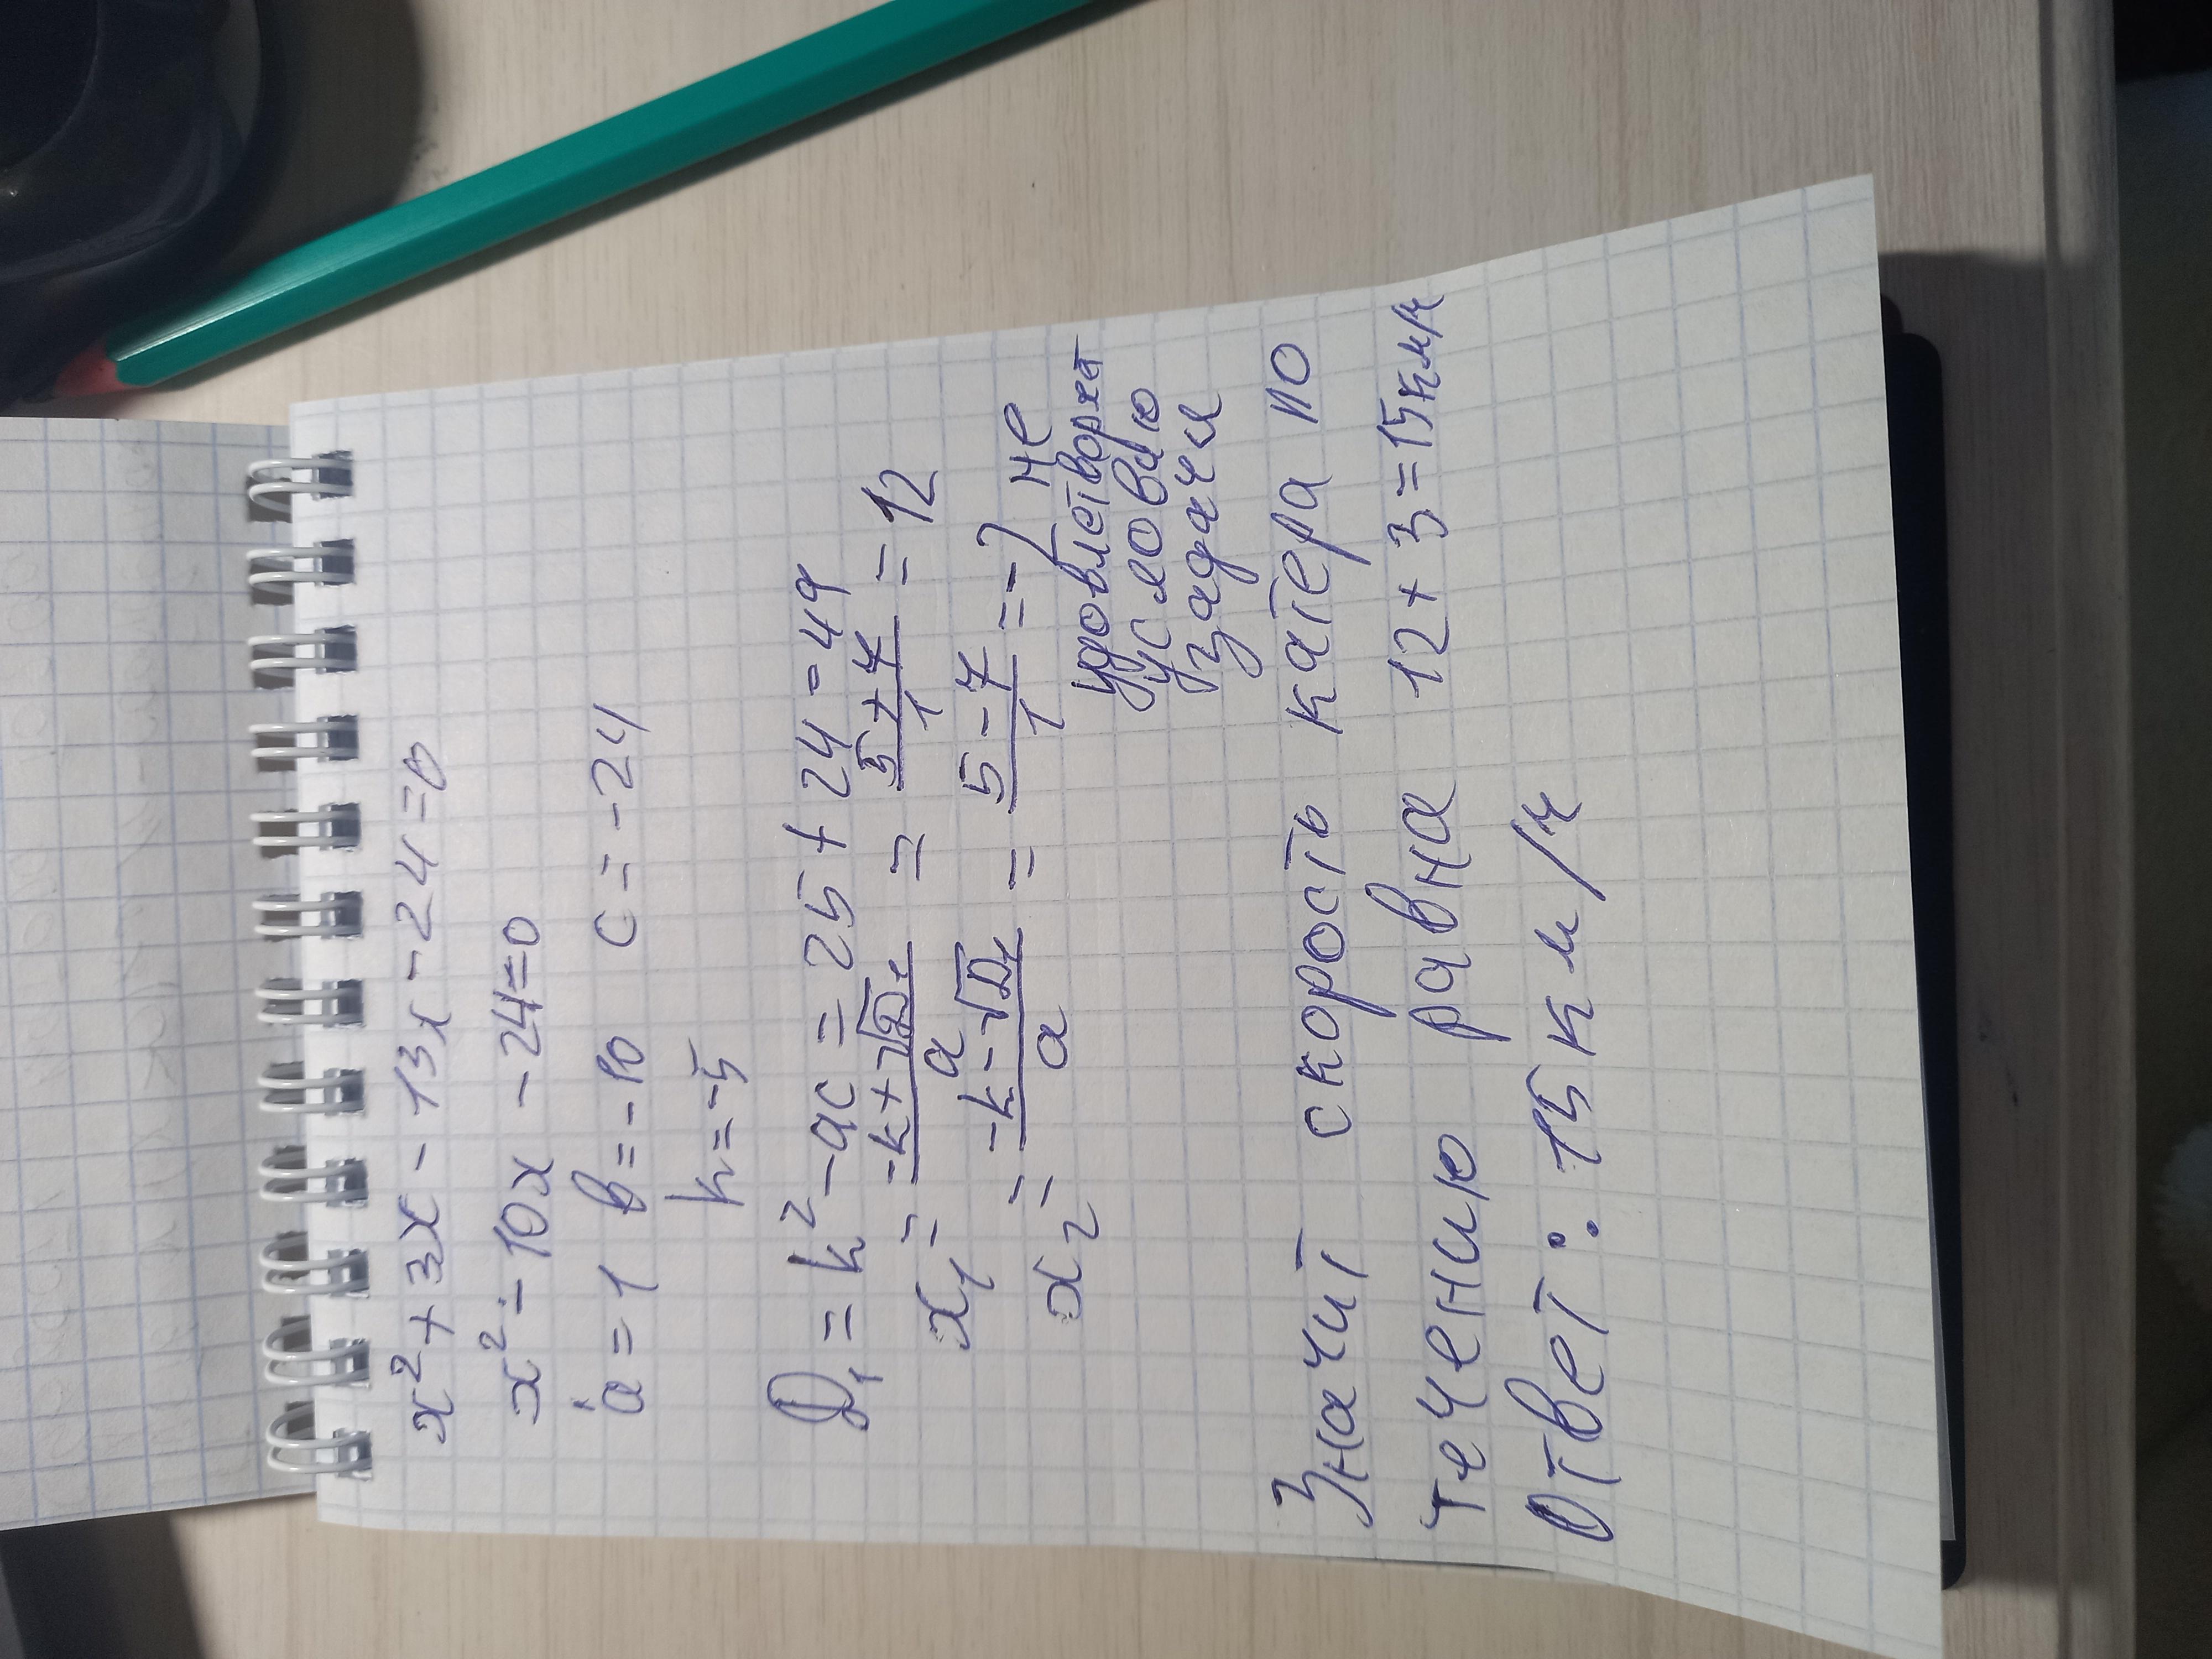 x² + 3x - 13x - 24 = 0
x² - 10x - 24 = 0
a = 1 b = -10 c = -24
k = -5
D₁ = k² - ac = 25 + 24 = 49
x₁ = (-k + √D₁)/a = (5 + 7)/1 = 12
x₂ = (-k - √D₁)/a = (5 - 7)/1 = -2 не
удовлетворяет
условию
задачи
Значит скорость катера по
течению равна 12 + 3 = 15 км/ч
Ответ: 15 км/ч